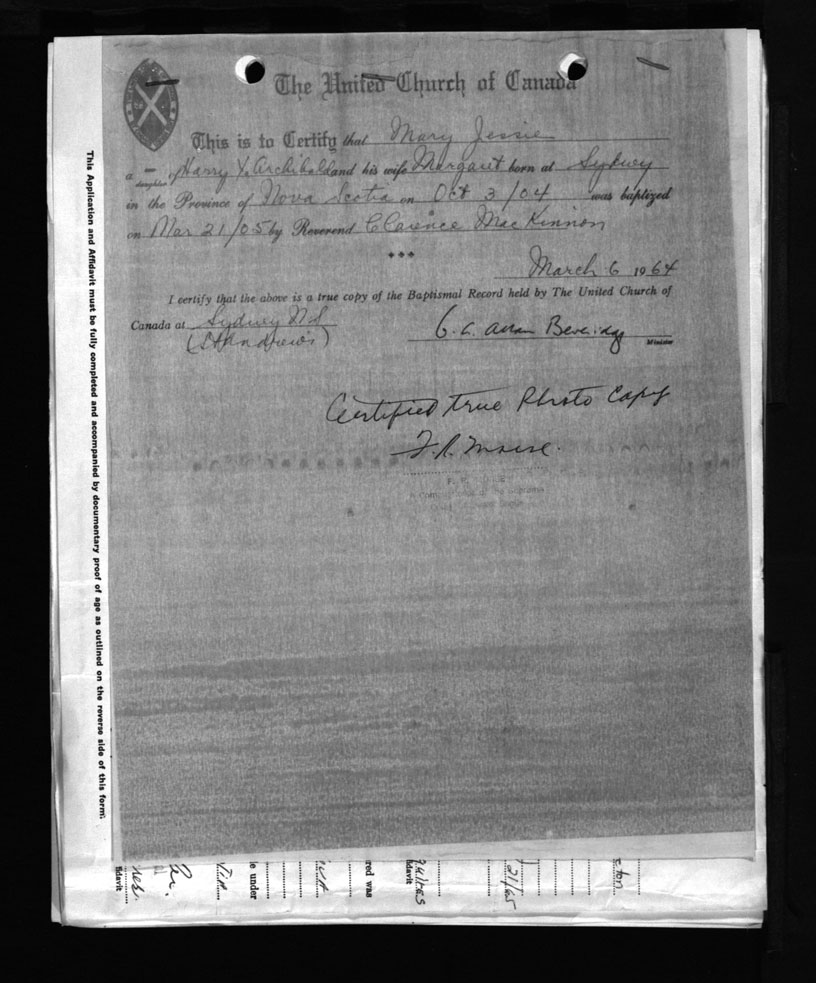 The United Church of Canada
This is to Certify that Mary Jessie
a daughter of Harry Y. Archibald and his wife Margaret born at Sydney
in the Province of Nova Scotia on Oct 3/04 was baptized
on Mar 21/05 by Reverend Clarence MacKinnon
March 6 1964
I certify that the above is a true copy of the Baptismal Record held by The United Church of
Canada at Sydney N S
(St Andrew's)
Minister
Certified true Photo Copy
This Application and Affidavit must be fully completed and accompanied by documentary proof of age as outlined on the reverse side of this form.
fidavit
e under
red was
fidavit
21/65